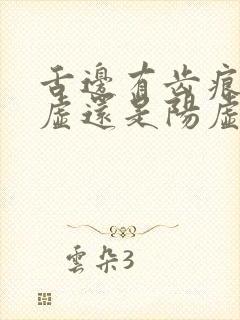 舌邊有齿痕
虛還是陽虛
雲朵3